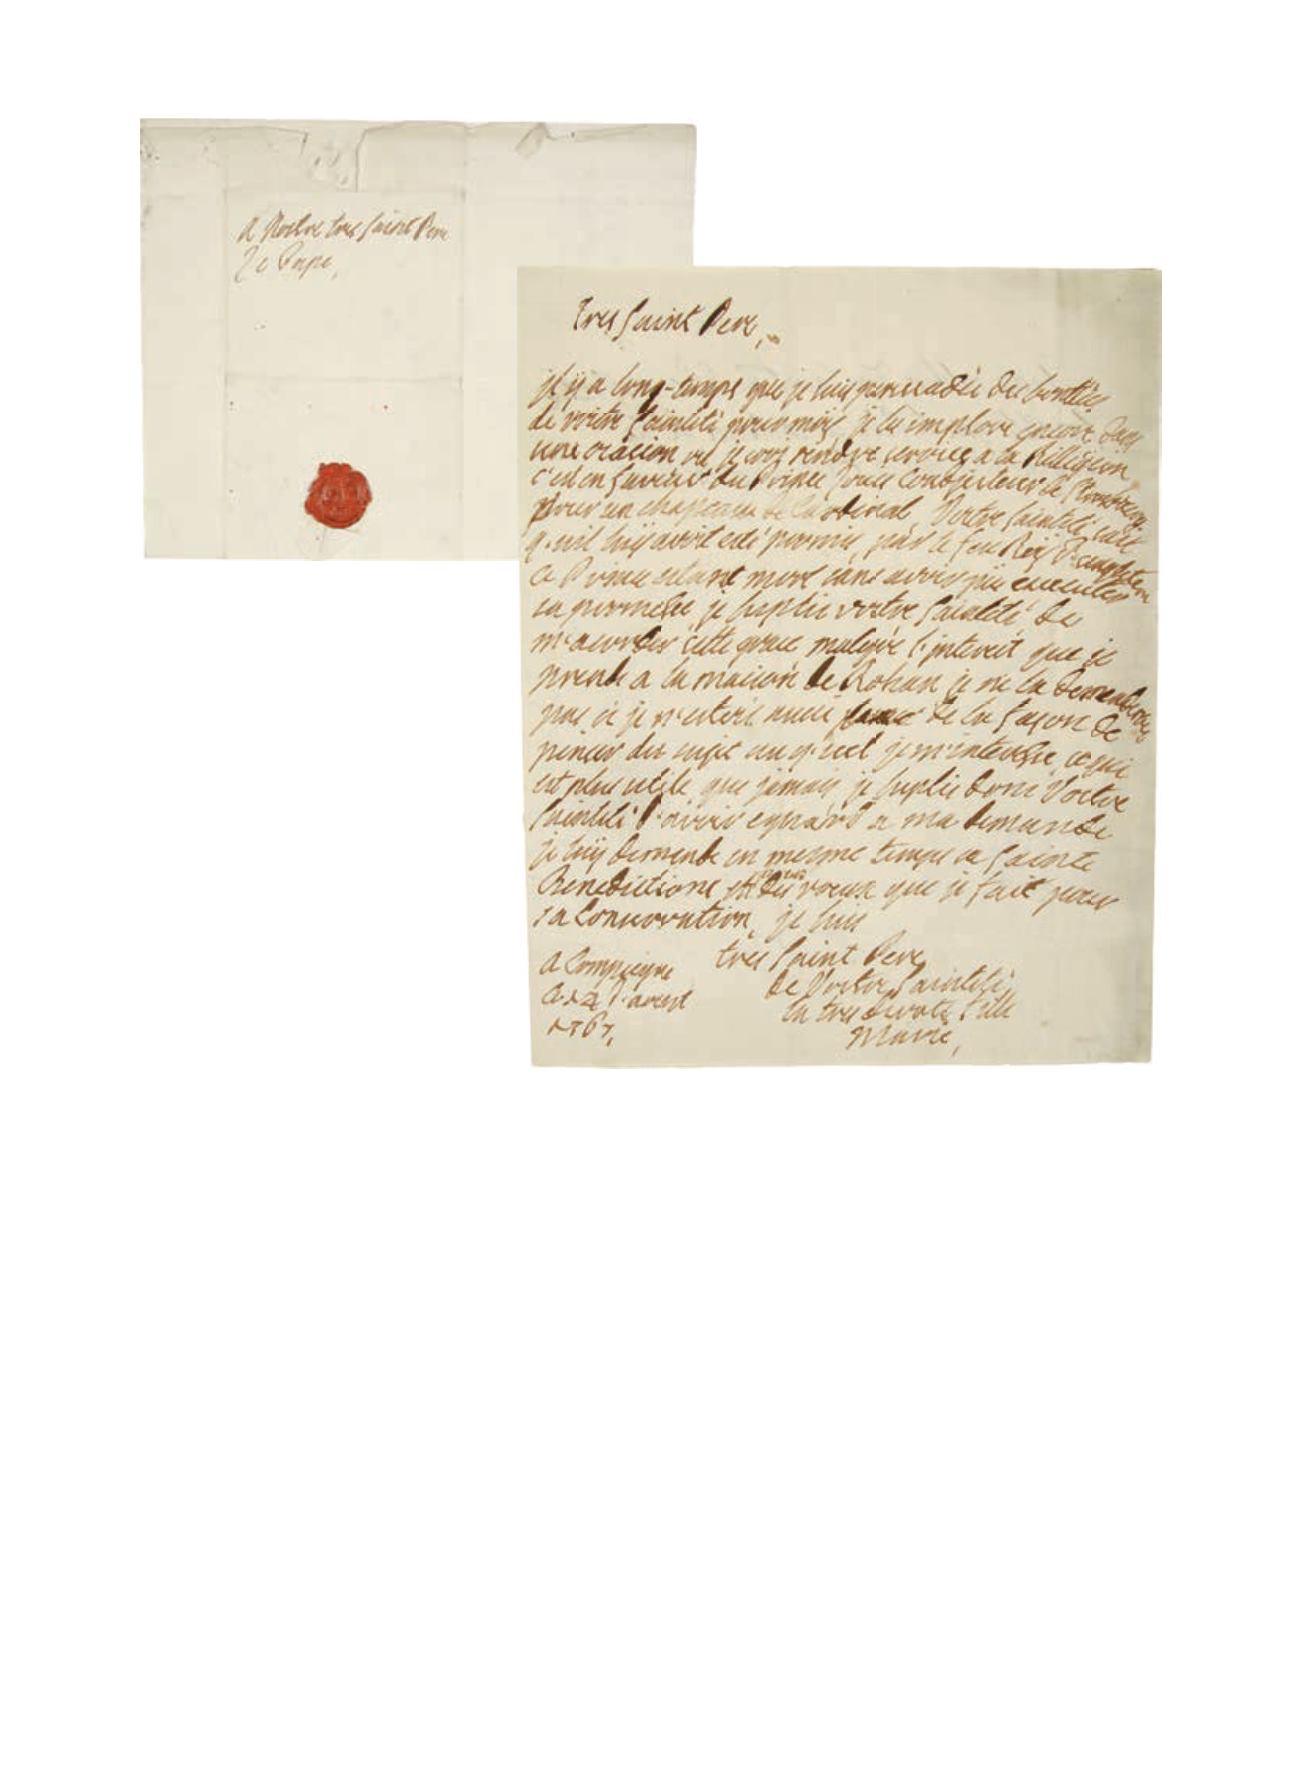 A Nostre tres saint Pere
Le Pape,
tres saint Pere,
il y a long-temps que je suis persuadée des bontées
de vostre sainteté pour moy, je les implore encore dans
une ocasion ou je croi rendre service a la Relligion
c'est en faveur du Prince Coadjuteur de Strasbourg
pour un chapeau de Cardinal, Vostre sainteté sait
qu'il luy avoit esté promis, par le feu Roy d'angleterre
ce Prince estant mort sans avoir pu executer
sa promesse, je suplie vostre sainteté de
m'acorder cette grace malgré l'intereit que je
prends a la maison de Rohan je ne la demanderois
pas si je n'estois aussi de la façon de
penser du sujet auquel je m'interesse, ce qui
est plus utile que jamais je suplie donc Vostre
sainteté d'avoir egard a ma demande
je luy demende en mesme temps sa sainte
Benedictione des voeux que je fait pour
sa Conservation, je suis
tres saint Pere
de Vostre sainteté
la tres devote fille
Marie,
A Compiegne
ce 24 d'aoust
1767,